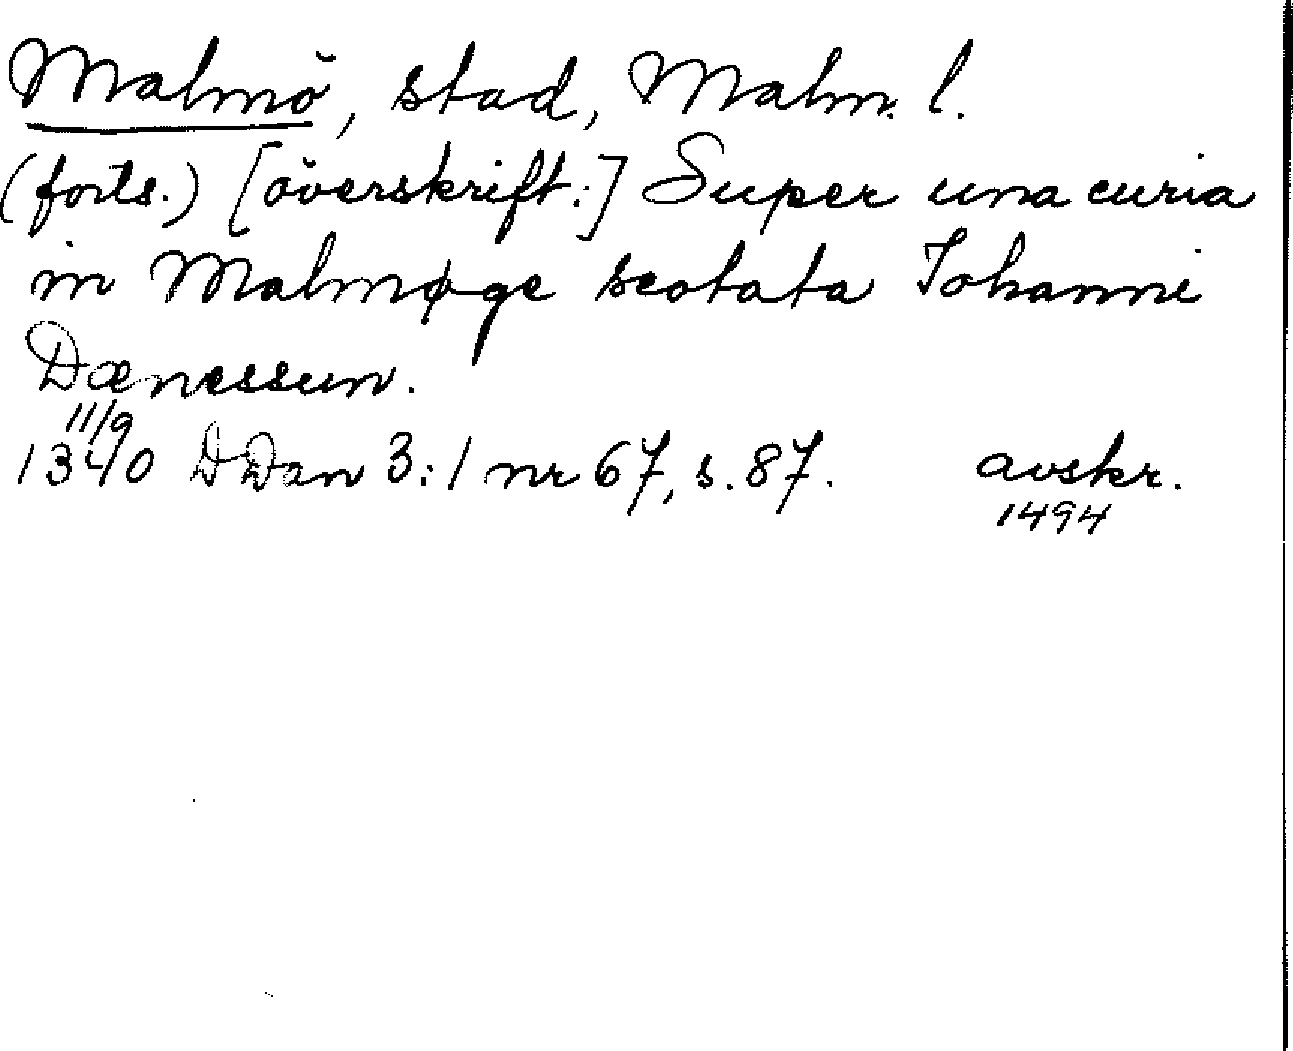 Malmö, stad, Malm. l.
(forts.) [överskrift:] Super una curia
in Malmøge scotata Johanni
Dænessun.
11/9
1340 DDan 3:1 nr 67, s. 87. avskr.
1494